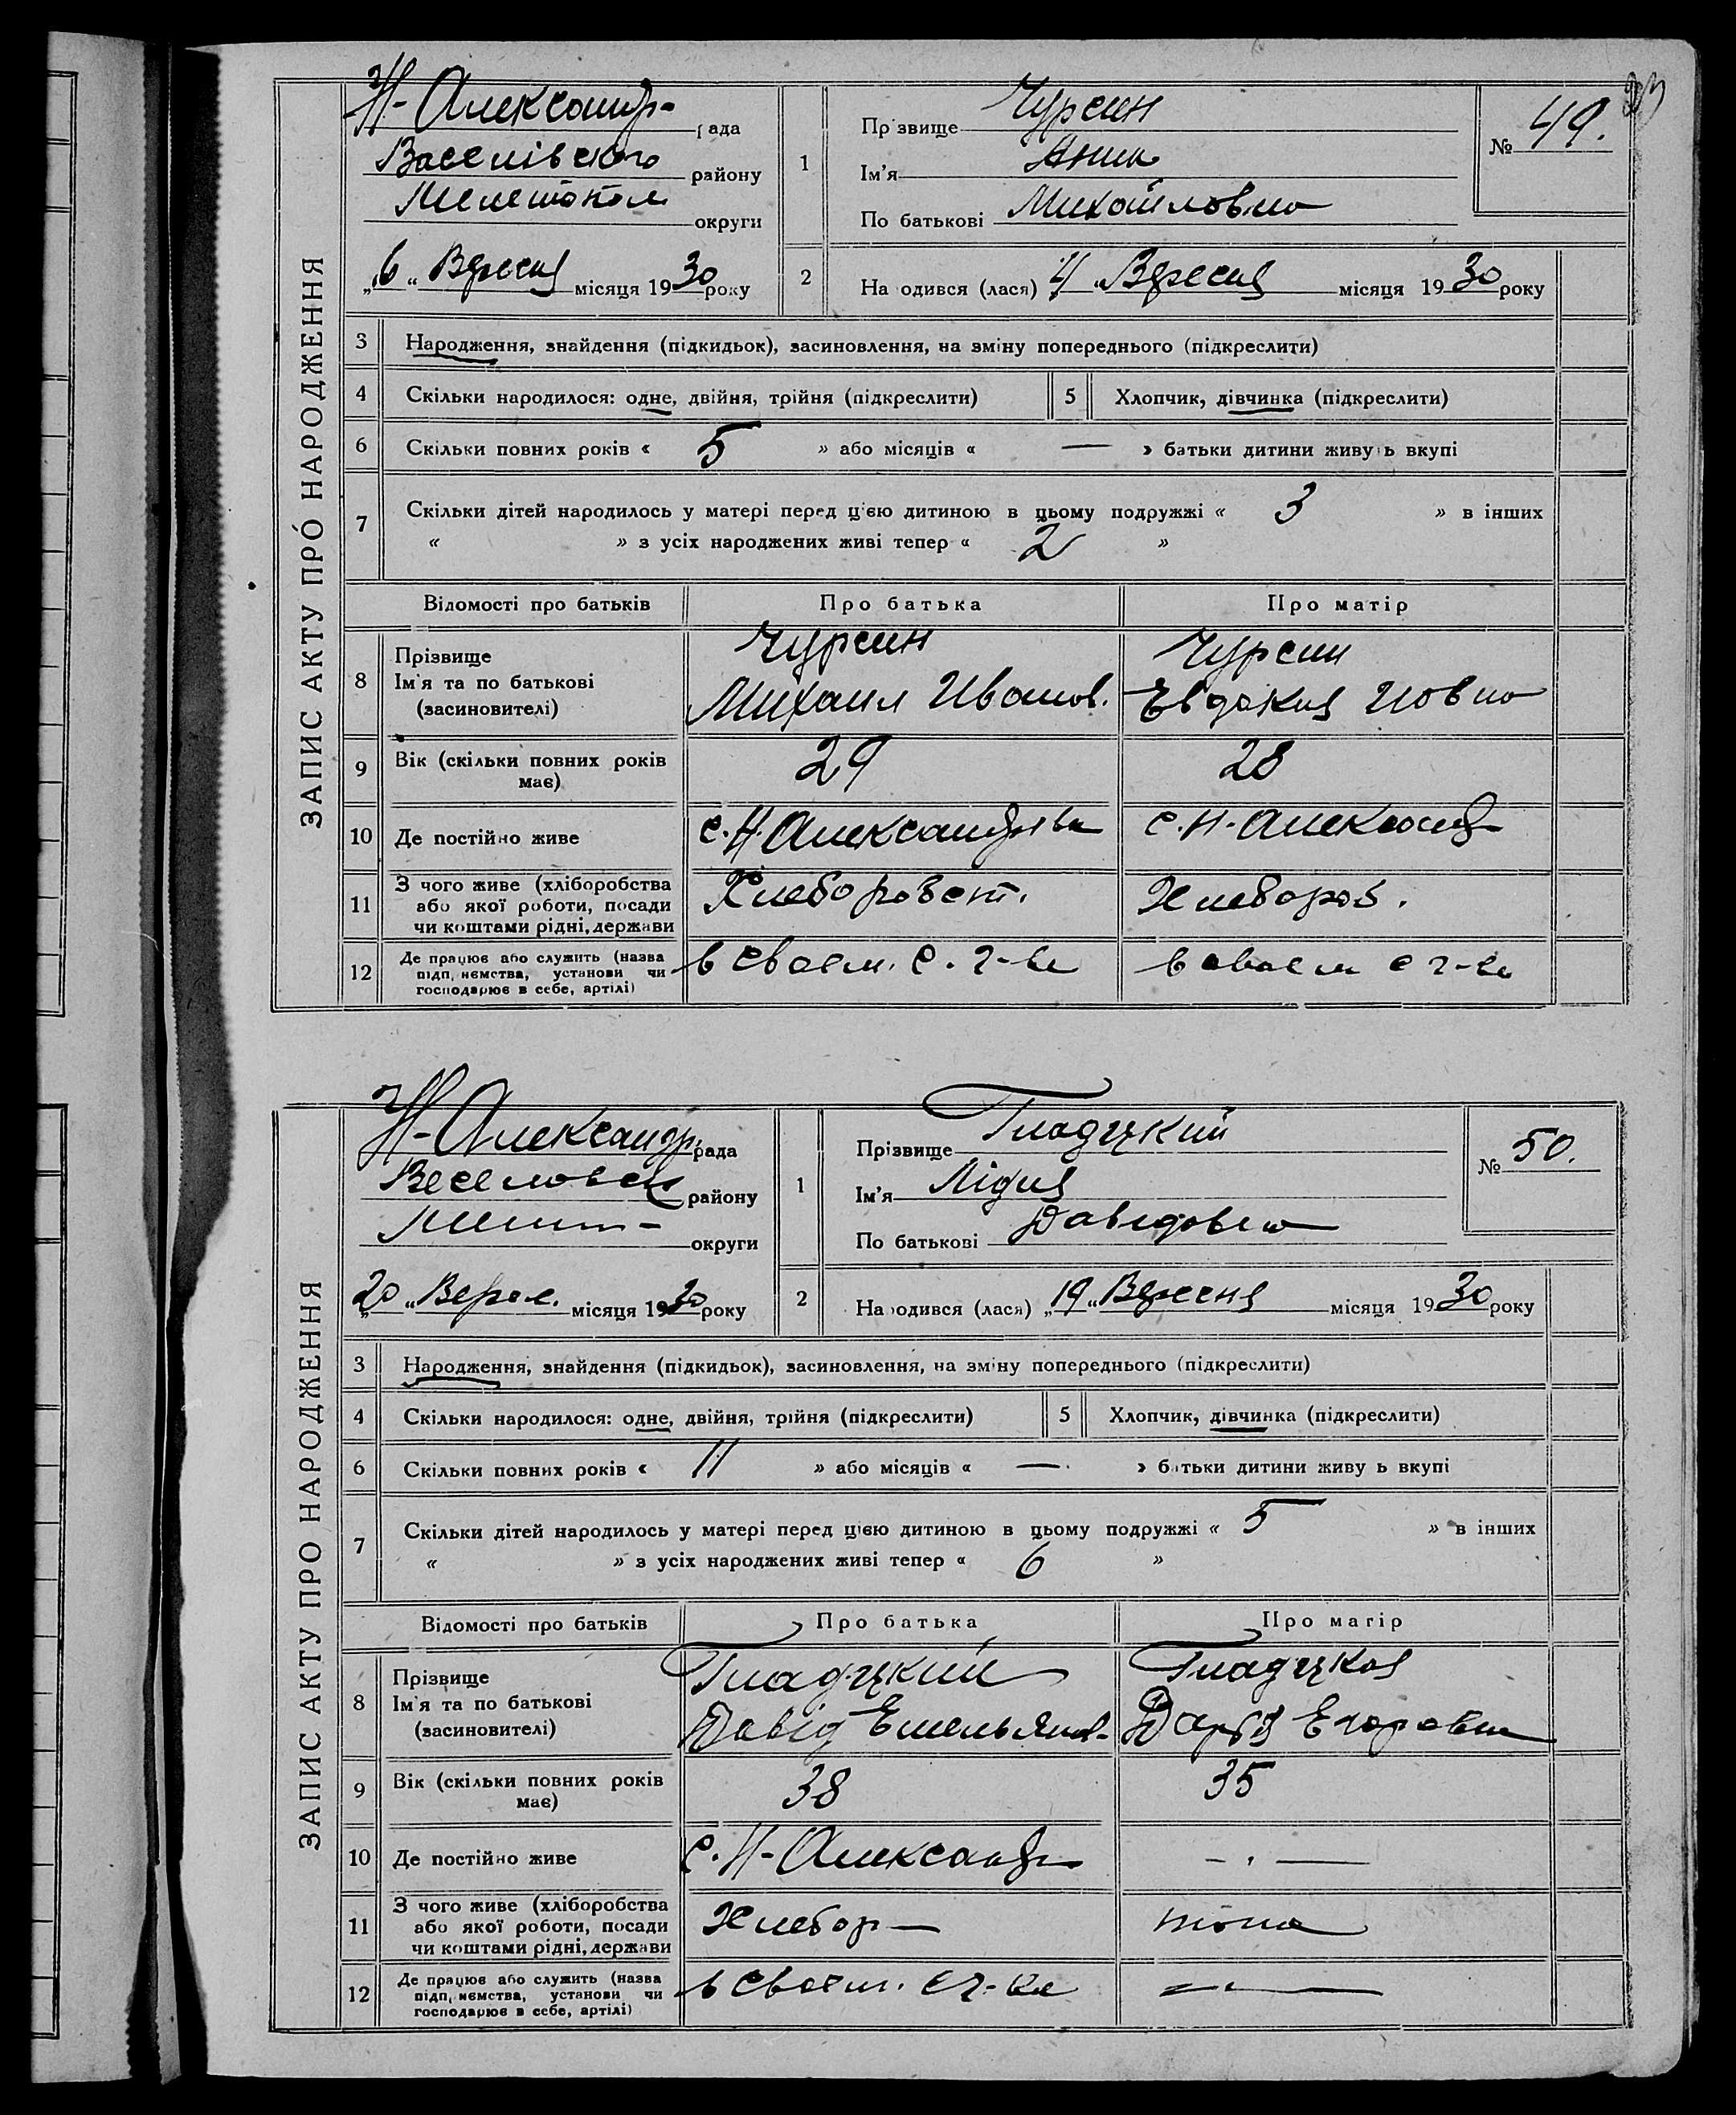 ЗАПИС АКТУ ПРО НАРОДЖЕННЯ
Н-Александр- рада
Васелівского району
Мелетопол округи
„6“ Вересня місяця 1930 року
1
Прізвище Чурсин
Ім'я Анна
По батькові Михайловна
№ 49.
2
На одився (лася) 4 „Вересня місяця 1930 року
3 Народження, знайдення (підкидьок), засиновлення, на зміну попереднього (підкреслити)
4 Скільки народилося: одне, двійня, трійня (підкреслити) 5 Хлопчик, дівчинка (підкреслити)
6 Скільки повних років « 5 » або місяців « — » батьки дитини живуть вкупі
7 Скільки дітей народилось у матері перед цією дитиною в цьому подружжі « 3 » в інших
« » з усіх народжених живі тепер « 2 »
Відомості про батьків Про батька Про матір
8 Прізвище Чурсин Чурсин
Ім'я та по батькові Михаил Иванов. Евдокия Иовна
(засиновителі)
9 Вік (скільки повних років має) 29 28
10 Де постійно живе с.Н.Александрівка с.Н-Александ
11 З чого живе (хліборобства Хлеборобст. Хлебороб.
або якої роботи, посади
чи коштами рідні, держави
12 Де працює або служить (назва в своем. с. г-ве в своем с г-ве
підприємства, установи чи
господарює в себе, артілі)
ЗАПИС АКТУ ПРО НАРОДЖЕННЯ
Н-Александр. рада
Веселовск району
Мелит- округи
20 „Верес. місяця 1930 року
1
Прізвище Гладцкий
Ім'я Лідия
По батькові Давидовна
№ 50.
2
На одився (лася) „19“ Вересня місяця 1930 року
3 Народження, знайдення (підкидьок), засиновлення, на зміну попереднього (підкреслити)
4 Скільки народилося: одне, двійня, трійня (підкреслити) 5 Хлопчик, дівчинка (підкреслити)
6 Скільки повних років « 11 » або місяців « — » батьки дитини живу ь вкупі
7 Скільки дітей народилось у матері перед цією дитиною в цьому подружжі « 5 » в інших
« » з усіх народжених живі тепер « 6 »
Відомості про батьків Про батька Про матір
8 Прізвище Гладцкий Гладцкая
Ім'я та по батькові Давід Емельянов- Дарья Егоровна
(засиновителі)
9 Вік (скільки повних років має) 38 35
10 Де постійно живе с.Н-Александр — „ —
11 З чого живе (хліборобства Хлебор— тоже
або якої роботи, посади
чи коштами рідні, держави
12 Де працює або служить (назва в своем. с г-ве — „ —
підприємства, установи чи
господарює в себе, артілі)